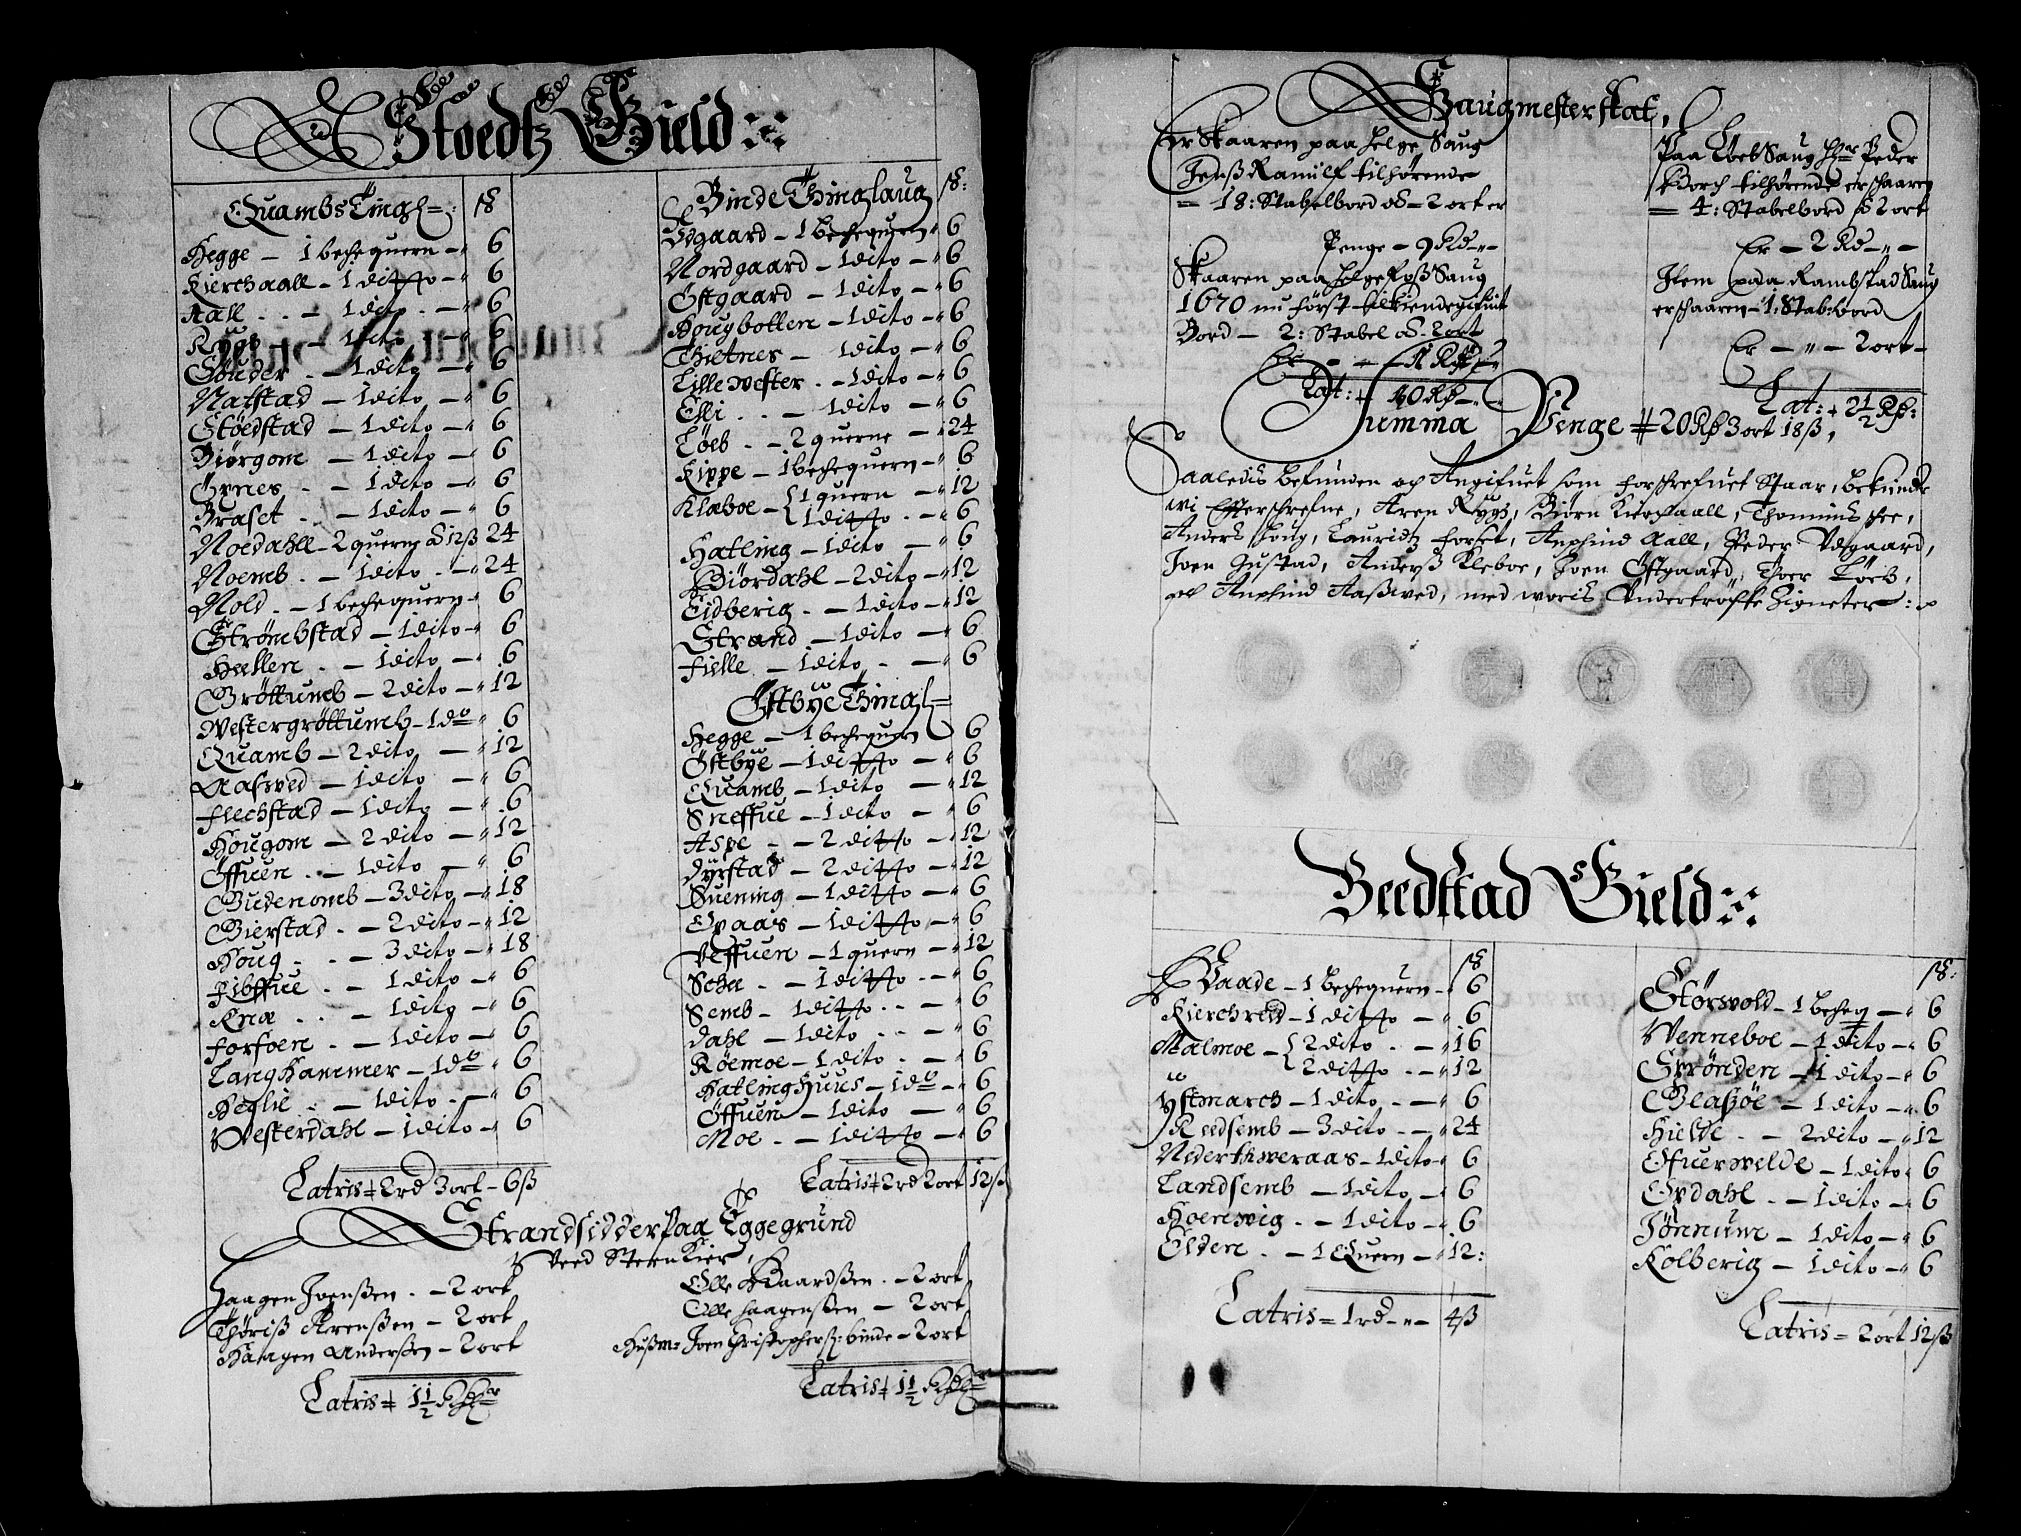 Stoedtz Gield
Quambs Tingl: ß
Hegge – 1 bechequern – 6
Kierchaall – 1 ditto – 6
Aall – 1 dito – 6
Rygg – 1 dito – 6
Sönder – 1 dito – 6
Natstad – 1 dito – 6
Stöedstad – 1 dito – 6
Biörgom – 1 dito – 6
Öxnes – 1 dito – 6
Braset – 1 dito – 6
Noedahll – 2 querne à 12 ß 24
Noemb – 1 dito – 24
Nold – 1 bechequern – 6
Strömbstad – 1 dito – 6
Hællen – 1 dito – 6
Gröttumb – 2 dito – 12
Westergröttumb – 1 do – 6
Quamb – 2 dito – 12
Aasved – 1 dito – 6
Flechstad – 1 dito – 6
Hougom – 2 dito – 12
Öffuen – 1 dito – 6
Gudenomb – 3 dito – 18
Bierstad – 2 dito – 12
Houg – 3 dito – 18
Fibffue – 1 dito – 6
Knæ – 1 dito – 6
Forfoen – 1 dito – 6
Langhammer – 1 do – 6
Heglie – 1 dito – 6
Westerdahl – 1 dito – 6
Latris 2 rd 3 ort – 6 ß
Binde Thinglaug ß:
Udgaard – 1 bechequern 6
Nordgaard – 1 dito – 6
Östgaard – 1 dito – 6
Hougbollen – 1 dito – 6
Thietnes – 1 dito – 6
Lille wester – 1 dito – 6
Elli – 1 dito – 6
Löeb – 2 querne – 24
Kippe – 1 bechequern – 6
Klæboe – 1 quern – 12
1 ditto – 6
Hatling – 1 dito – 6
Diördahl – 2 dito – 12
Eidberig – 1 dito – 12
Strand – 1 dito – 6
Fielle – 1 dito – 6
Östbye Thingl
Hegge – 1 bechequern 6
Östbye – 1 ditto – 6
Quamb – 1 dito – 12
Sneffue – 1 dito – 6
Aspe – 2 ditto – 12
Dyrstad – 2 ditto – 12
Suening – 1 ditto – 6
Opaais – 1 ditto – 6
Veffuen – 1 quern – 12
Schei – 1 ditto – 6
Semb – 1 ditto – 6
Dahl – 1 dito – 6
Röemoe – 1 dito – 6
Hatlinghuus – 1 do – 6
Öffuen – 1 dito – 6
Moe – 1 ditto – 6
Latris 2 rd 2 ort 12 ß
Strandsidder Paa Eggegrund
Veed Steenkier,
Haagen Joenßen – 2 ort
Thöriß Arenßen – 2 ort
Haagen Anderßen – 2 ort
Latris 1 1/2 Rdr
Olle Baardßen – 2 ort
Olle Haagenßen – 2 ort
Hußm: Joen Christophersß: binde – 2 ort
Latris 1 1/2 Rdr
Saugmesterskat,
Er Skaaren paa Helge Saug
Jenß Ramulf tilhörende
18: Stabelbord à – 2 ort er
Penge – 9 Rd –
Skaaren paa Helge Roß Saug
1670 nu först tilkiendegifuit
Bord – 2: Stabel à – 2 ort
Er – 1 Rd
Lat: 10 Rd
Paa Löeb Saug Hr Peder
Borch tilhörende er schaaren
4: Stabelbord à 2 ort
Er – 2 Rd –
Item paa Rambstad Saug
er schaaren – 1: Stab: bord
Er – 2 ort –
Lat: 2 1/2 Rd:
Summa Penge 20 Rd 3 ort 18 ß,
Saaledis befunden og Angifuet som forschrefuet Staar, bekiende
wi Effterschrefne, Aren Rygg, Biörn Kierchaall, Thommis schee,
Anders Houg, Lauridtz Forset, Anphind Aall, Peder Udgaard,
Joen Justad, Anderß Kleboe, Joen Östgaard, Thoer Löeb,
och Anphind Aaßwed, med woris Undertröchte Zigneter:
Beedstad Gield
Vaade – 1 bechequern – 6
Kierchred – 1 ditto – 6
Malmoe – 2 dito – 16
2 ditto – 12
Ystmarch – 1 dito – 6
Reedsemb – 3 dito – 24
Neder Hweraas – 1 dito 6
Landsemb – 1 dito – 6
Hoerswig – 1 dito – 6
Elden – 1 Quern – 12:
Latris 1 rd – 4 ß
ß:
Störwold – 1 becheq – 6
Venneboe – 1 dito – 6
Strönden – 1 dito – 6
Glaßöe – 1 dito – 6
Hielde – 2 dito – 12
Ofuerwelde – 1 dito 6
Opdahl – 1 dito – 6
Jönnum – 1 dito – 6
Kolberig – 1 dito – 6
Latris 2 ort 12 ß